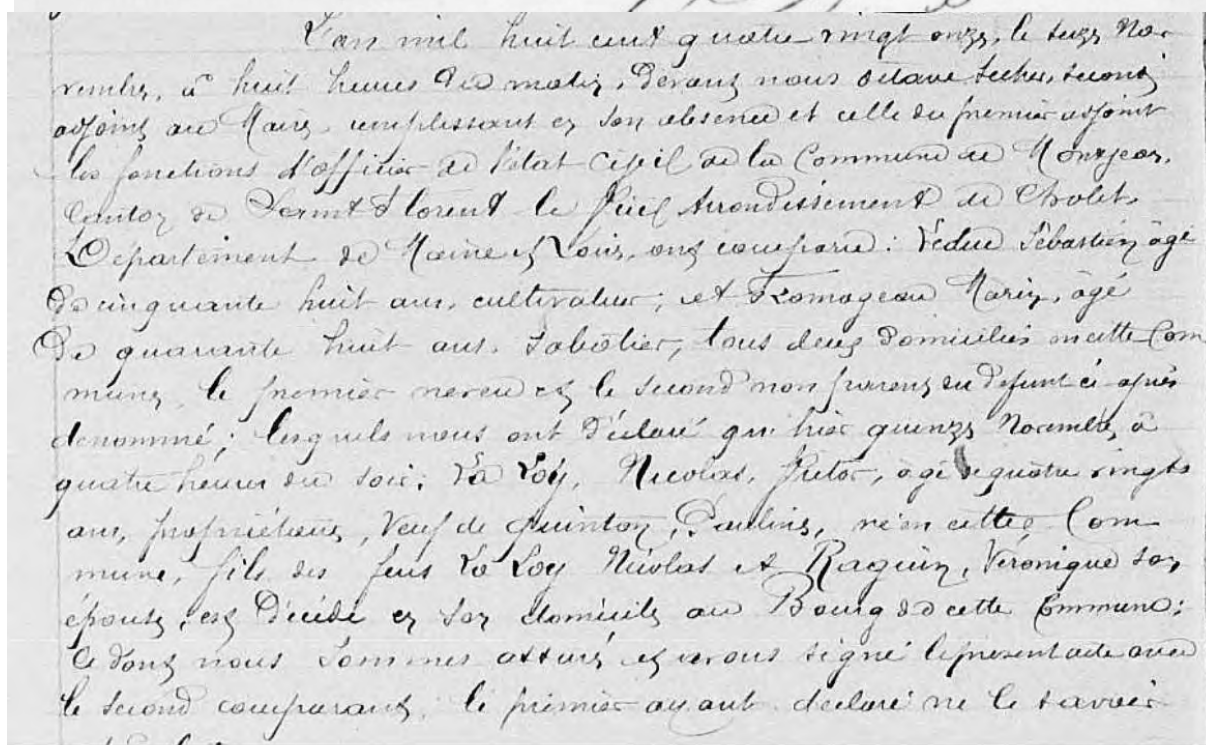 L'an mil huit cent quatre vingt onze, le seize No-
vembre, à huit heures du matin, devant nous Octave Secher, second
adjoint au Maire, remplissant en son absence et celle du premier adjoint
les fonctions d'officier de l'état civil de la Commune de Montjean,
Canton de Saint Florent le Vieil Arrondissement de Cholet
Département de Maine et Loire, ont comparu: Leduc Sébastien âgé
de cinquante huit ans, cultivateur; et Fromageau Marin, âgé
de quarante huit ans, Sabotier, tous deux domiciliés en cette Com
mune, le premier neveu et le second non parent du défunt ci après
dénommé; lesquels nous ont déclaré qu'hier quinze Novembre, à
quatre heures du soir; La Loy, Nicolas, Victor, âgé de quatre vingts
ans, propriétaire, Veuf de Quinton, Pauline, né en cette Com-
mune, fils des feus La Loy Nicolas et Raguin, Véronique son
épouse, est décédé en son domicile au Bourg de cette Commune;
Ce dont nous sommes assuré et avons signé le présent acte avec
le second comparant, le premier ayant déclaré ne le savoir